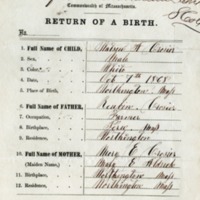 Commonwealth of Massachusetts.
RETURN OF A BIRTH.
No.
1. Full Name of CHILD, Warren A Crosier
2. Sex, Male
3. Color, White
4. Date, Oct 7th 1868
5. Place of Birth, Worthington Mass
6. Full Name of FATHER, Crosier
7. Occupation, Farmer
8. Birthplace, Peru Mass
9. Residence, Worthington
10. Full Name of MOTHER, Mary E Crosier
(Maiden Name) Mary E
11. Birthplace, Worthington Mass
12. Residence, Worthington Mass